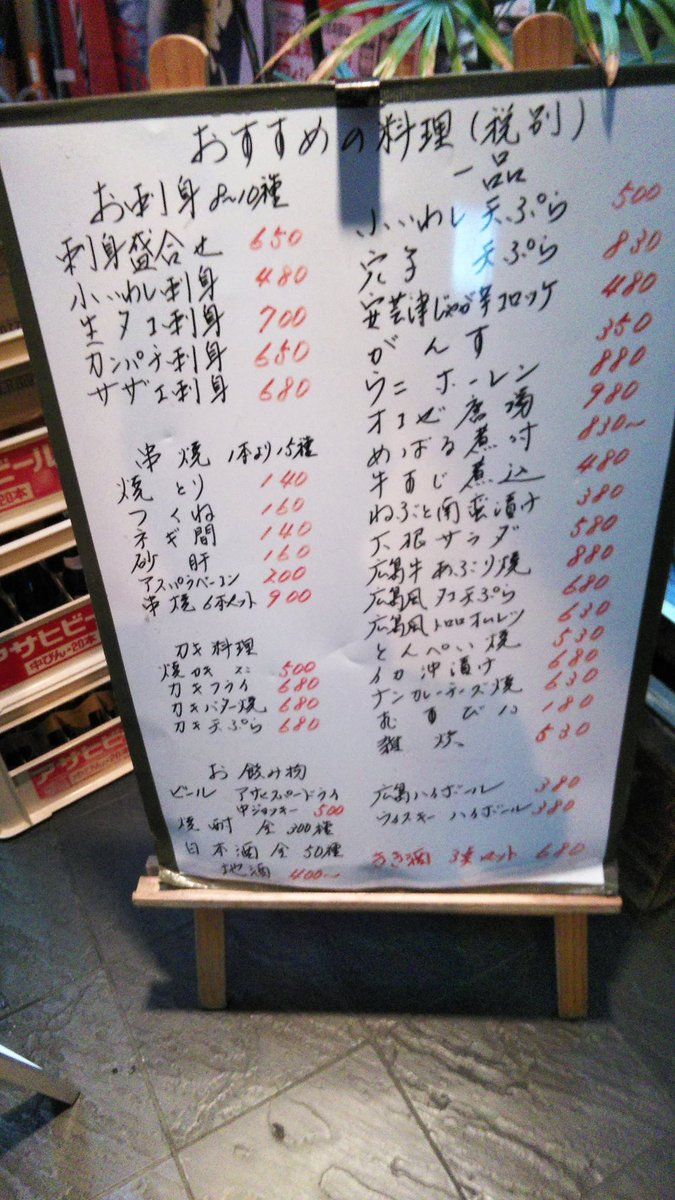 おすすめの料理(税別)
お刺身 8〜10種
刺身盛合せ 650
小いわし刺身 480
生タコ刺身 700
カンパチ刺身 650
サザエ刺身 680
串焼 1本より15種
焼とり 140
つくね 160
ネギ間 140
砂肝 160
アスパラベーコン 200
串焼6本セット 900
カキ料理
焼カキ 500
カキフライ 680
カキバター焼 680
カキ天ぷら 680
一品
小いわし天ぷら 500
穴子 天ぷら 830
安芸津じゃが芋コロッケ 480
がんす 350
ウニホーレン 880
オコゼ唐揚 980
めばる煮付 830〜
牛すじ煮込 480
ねぶと南蛮漬け 380
大根サラダ 580
広島牛あぶり焼 880
広島風タコ天ぷら 680
広島風トロロオムレツ 630
とんぺい焼 530
イカ沖漬け 680
ナンカレーチーズ焼 630
むすび 180
雑炊 530
お飲み物
ビール アサヒスーパードライ
中ジョッキー 500
焼酎 全300種
日本酒 全50種
地酒 400〜
広島ハイボール 380
ウィスキーハイボール 380
きき酒 3点セット 680
ビール
中びん-20本
アサヒビール
中びん-20本
アサヒビ